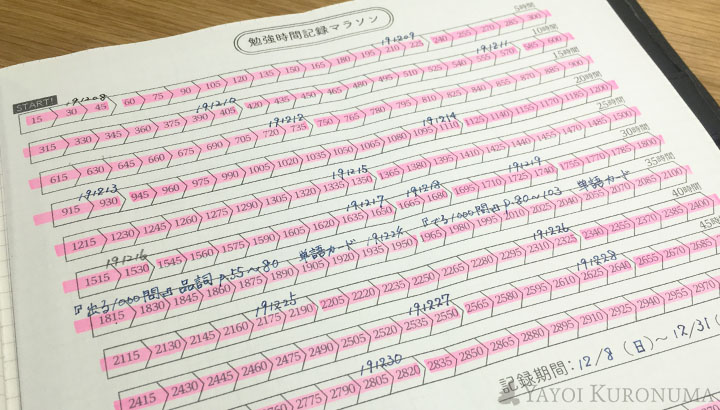 勉強時間記録マラソン
5時間
START!
191208 191209
15 30 45 60 75 90 105 120 135 150 165 180 195 210 225 240 255 270 285 300
10時間
191210 191211
315 330 345 360 375 390 405 420 435 450 465 480 495 510 525 540 555 570 585 600
15時間
191212 191214
615 630 645 660 675 690 705 720 735 750 765 780 795 810 825 840 855 870 885 900
20時間
191213
915 930 945 960 975 990 1005 1020 1035 1050 1065 1080 1095 1110 1125 1140 1155 1170 1185 1200
25時間
191215 191219
1215 1230 1245 1260 1275 1290 1305 1320 1335 1350 1365 1380 1395 1410 1425 1440 1455 1470 1485 1500
30時間
191216 191217 191218
1515 1530 1545 1560 1575 1590 1605 1620 1635 1650 1665 1680 1695 1710 1725 1740 1755 1770 1785 1800
35時間
『出る1000問』品詞 P.55〜80 単語カード 191224 『でる1000問』 P.80〜103 単語カード
1815 1830 1845 1860 1875 1890 1905 1920 1935 1950 1965 1980 1995 2010 2025 2040 2055 2070 2085 2100
40時間
191225 191226
2115 2130 2145 2160 2175 2190 2205 2220 2235 2250 2265 2280 2295 2310 2325 2340 2355 2370 2385 2400
45時間
191227 191228
2415 2430 2445 2460 2475 2490 2505 2520 2535 2550 2565 2580 2595 2610 2625 2640 2655 2670
191230
2775 2790 2805 2820 2835 2850 2865 2880 2895 2910 2925 2940 2955 2970
記録期間: 12/8 (日)〜 12/31 (
YAYOI KURONUMA